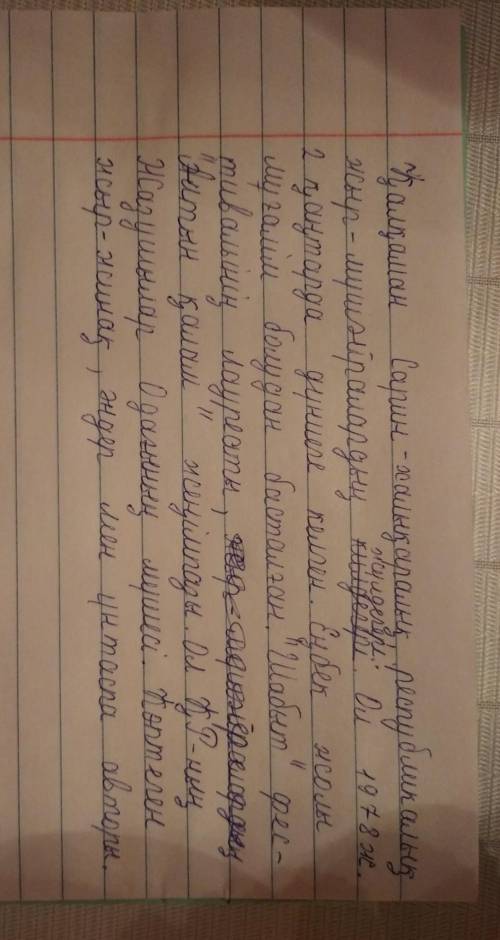 Қалқаман Сарин - халықаралық, республикалық
жыр-мүшәйралардың жүлдегері. Ол 1978 ж.
2 қаңтарда дүниеге келген. Еңбек жолы
мұғалім болудан басталған. "Шабыт" фес-
тивалінің лауреаты,
"Алтын қалам" жеңімпазы. Ол ҚР-ның
Жазушылар Одағының мүшесі. Көптеген
жыр-жинақ, әндер мен үнтаспа авторы.